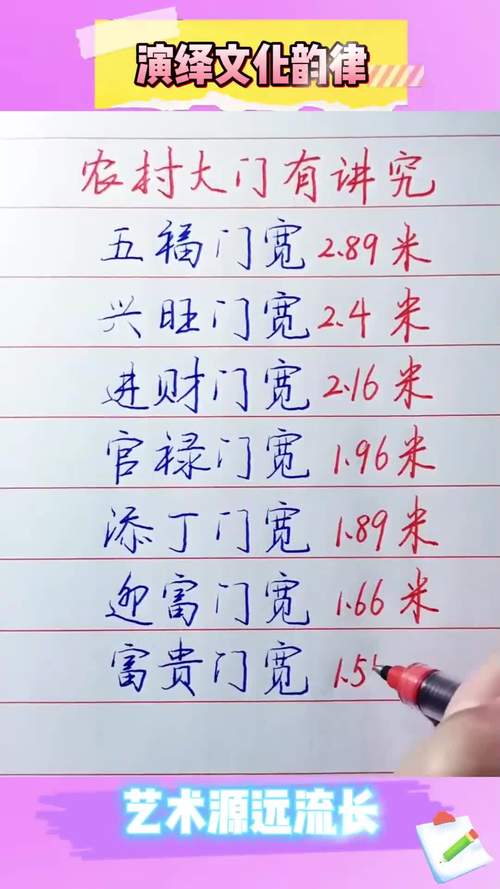 演绎文化韵律
农村大门有讲究
五福门宽2.89米
兴旺门宽2.4米
进财门宽2.16米
官禄门宽1.96米
添丁门宽1.89米
迎富门宽1.66米
富貴门宽
艺术源远流长